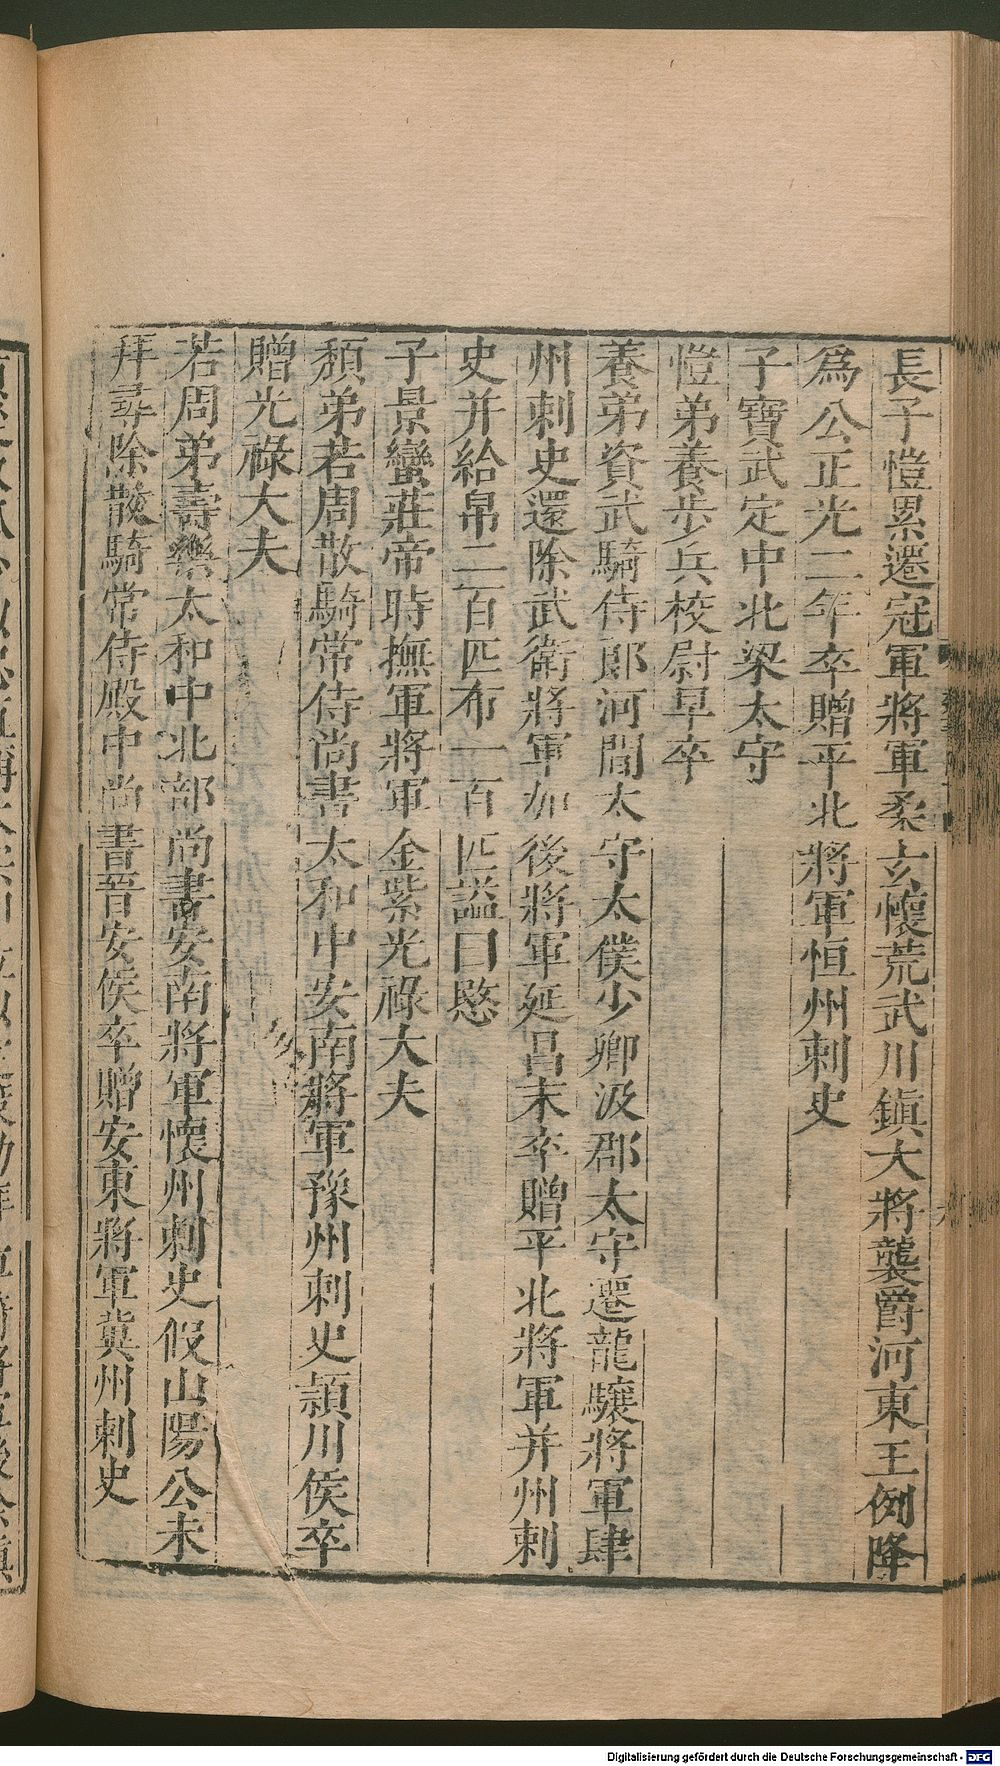 長子愷累遷冠軍將軍柔玄懷荒武川鎮大將襲爵河東王例降
為公正光二年卒贈平北將軍恒州刺史
子寶武定中北梁太守
愷弟養步兵校尉早卒
養弟資武騎侍郎河間太守太僕少卿汲郡太守遷龍驤將軍肆
州刺史還除武衛將軍加後將軍延昌末卒贈平北將軍并州刺
史并給帛二百匹布一百匹謚曰愍
子景蠻莊帝時撫軍將軍金紫光祿大夫
頹弟若周散騎常侍尚書太和中安南將軍豫州刺史潁川侯卒
贈光祿大夫
若周弟壽樂太和中北部尚書安南將軍懷州刺史假山陽公未
拜尋除散騎常侍殿中尚書晉安侯卒贈安東將軍冀州刺史
Digitalisierung gefördert durch die Deutsche Forschungsgemeinschaft - DFG